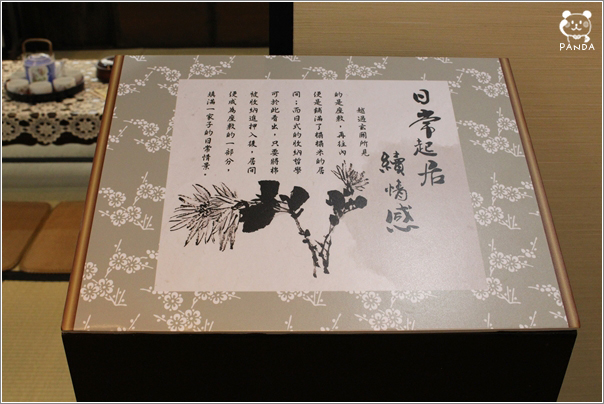 日常起居
續情感
越過玄關所見
的是座敷，再往內
便是鋪滿了榻榻米的居
間；而日式的收納哲學
可於此看出，只要將棉
被收納進押入後，居間
便成為座敷的一部分，
填滿一家子的日常情景。
PANDA